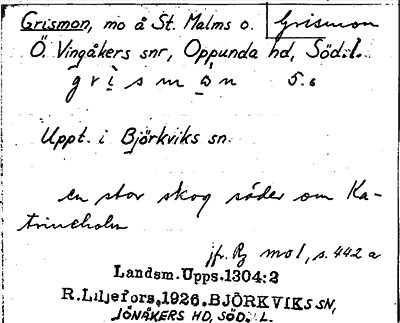 Grismon, mo å St. Malms o. Grismon
Ö. Vingåkers snr, Oppunda hd, Söd.l.
Uppt. i Björkviks sn.
en stor skog söder om Ka-
trineholm
jfr. Rz mol, s. 442 a
Landsm.Upps.1304:2
R.Liljefors,1926.BJÖRKVIKS SN,
JÖNÅKERS HD, SÖD. L.